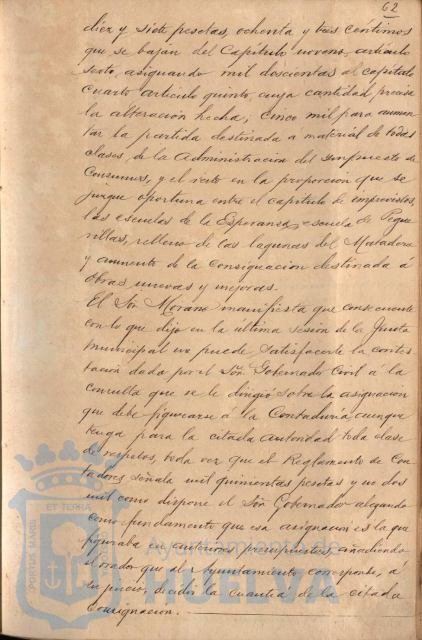 62
diez y siete pesetas, ochenta y tres céntimos
que se bajan del Capítulo noveno, artículo
sexto, asignando mil doscientas al capítulo
cuarto artículo quinto, cuya cantidad precisa
la alteración hecha; cinco mil para aumen
tar la partida destinada a material de todas
clases, de la Administración del impuesto de
Consumos, y el resto en la proporción que se
juzgue oportuna entre el capítulo de imprevistos,
las escuelas de la Esperanza, escuela de Pegue
rillas, relleno de las lagunas del Matadero
y aumento de la consignación destinada á
obras nuevas y mejoras.
El Sor. Morano manifiesta que consecuente
con lo que dijo en la última sesión de la Junta
municipal no puede satisfacerle la contes
tación dada por el Sor. Gobernador Civil á la
consulta que se le dirigió sobre la asignación
que debe figurarse á la Contaduría aunque
tenga para la citada autoridad toda clase
de respetos, toda vez que el Reglamento de Con
tadores señala mil quinientas pesetas y no dos
mil como dispone el Sor. Gobernador alegando
como fundamento que esa asignación es la que
figuraba en anteriores presupuestos, añadiendo
el orador que al Ayuntamiento corresponde, á
su juicio, decidir la cuantía de la citada
consignación.
PORTUS MARIS ET TERRA
Ayuntamiento de
HUELVA